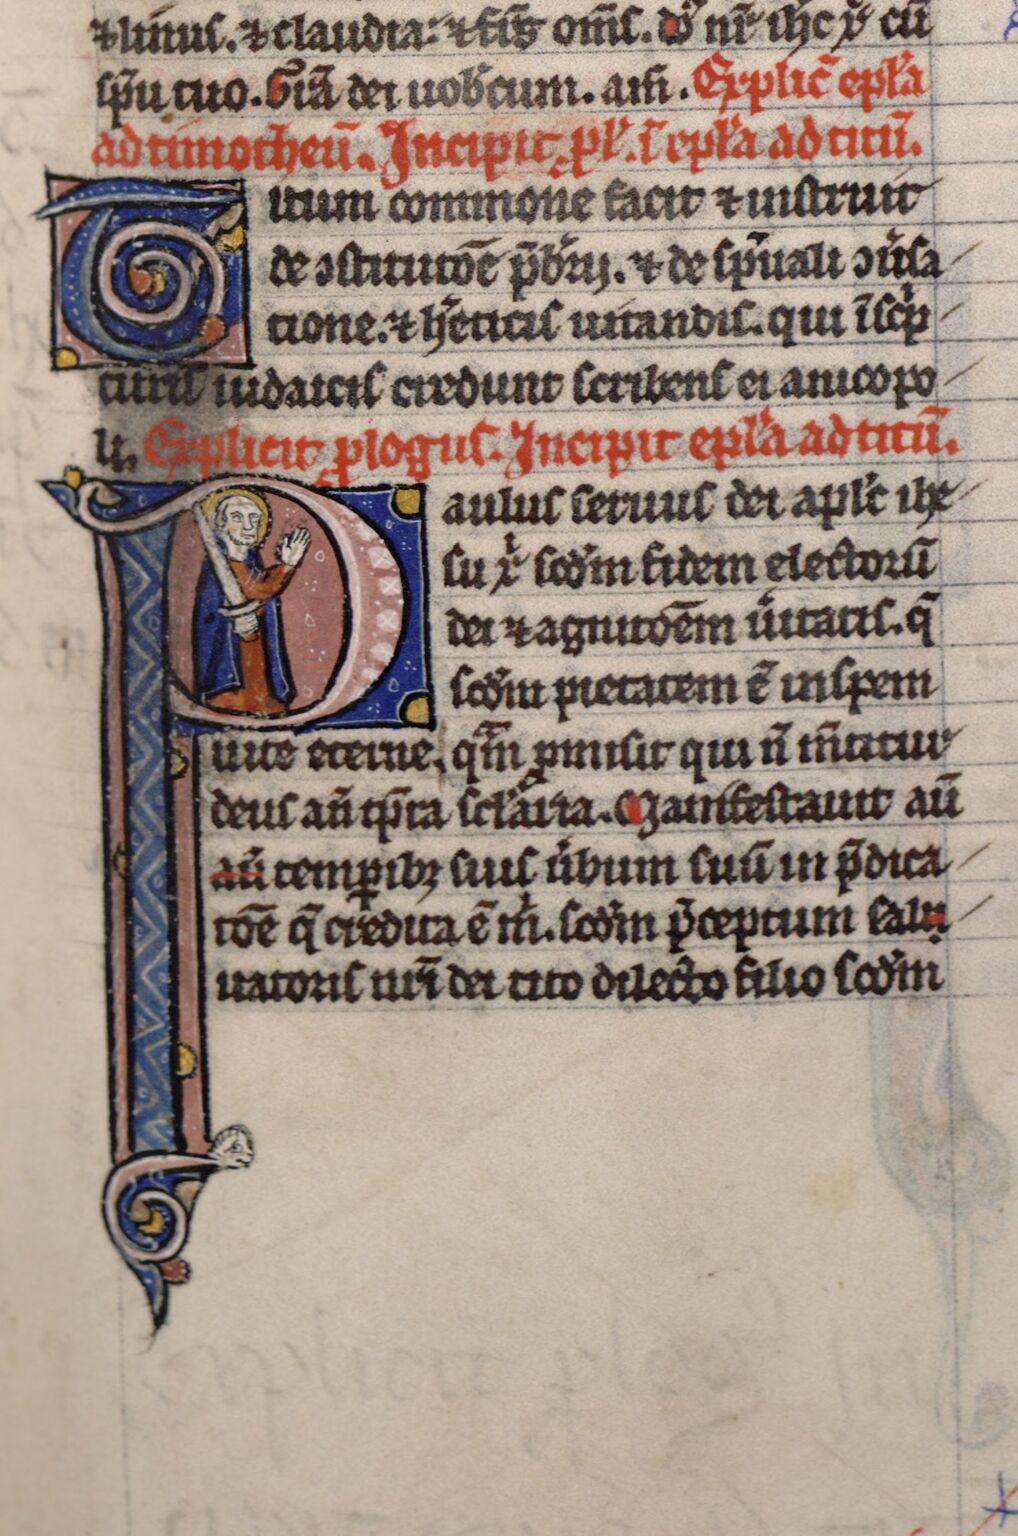 ⁊ linus. ⁊ claudia. ⁊ fr̄s om̄s. dn̄s nr̄ ih̄c xp̄c cū
sp̄u tuo. Gr̄a dei uobcum. am̄. Explic̄ epl̄a
ad timotheū. Incipit pl̄. ī epl̄a ad titū.
itum commone facit ⁊ instruit
de ɔstitutōe p̄bri̅j. ⁊ de sp̄uali ɔũsa
tione. ⁊ h̄eticis uitandis. qui ī sc̄p
turis iudaicis credunt scribens ei a nicopo
li. Explicit ꝓlogus. Incipit epl̄a ad titū.
aulus seruus dei apl̄c ihe
su xp̄i scd̄m fidem electorū
dei ⁊ agnitōem ũitatis. q̄
scd̄m pietatem ē in spem
uite eterne. qm̄ ꝓmisit qui n̄ m̄titur
deus an̄ tp̄ra sclaria. Manifestauit aū
aū temꝑibꝫ suis ũbum suū in p̄dica
tōe q̄ credita ē m̍. scd̄m p̄ceptum salu
uatoris nr̄i dei tito dilecto filio scd̄m